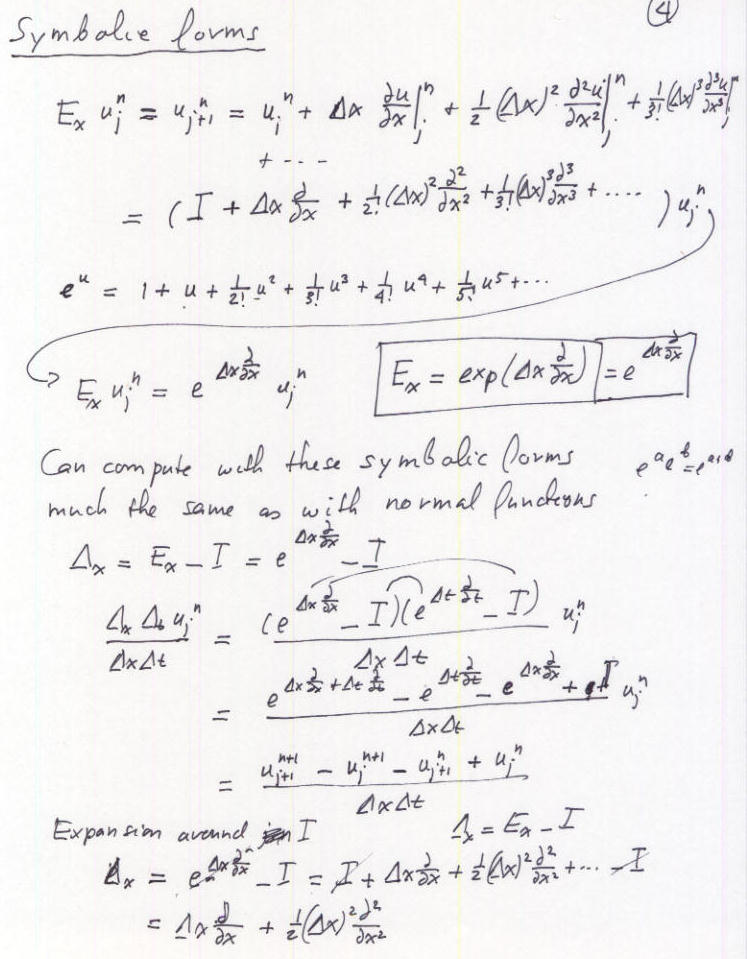 ④
Symbolic forms
E_x u_j^n = u_{j+1}^n = u_j^n + Δx ∂u/∂x|_j^n + 1/2 (Δx)^2 ∂^2u/∂x^2|_j^n + 1/3! (Δx)^3 ∂^3u/∂x^3|_j^n
+ ---
= (I + Δx ∂/∂x + 1/2! (Δx)^2 ∂^2/∂x^2 + 1/3! (Δx)^3 ∂^3/∂x^3 + ....) u_j^n
e^u = 1 + u + 1/2! u^2 + 1/3! u^3 + 1/4! u^4 + 1/5! u^5 + ...
E_x u_j^n = e^{Δx ∂/∂x} u_j^n   E_x = exp(Δx ∂/∂x) = e^{Δx ∂/∂x}
Can compute with these symbolic forms   e^a e^b = e^{a+b}
much the same as with normal functions
Δ_x = E_x - I = e^{Δx ∂/∂x} - I
Δ_x Δ_t u_j^n / ΔxΔt = (e^{Δx ∂/∂x} - I)(e^{Δt ∂/∂t} - I) / ΔxΔt u_j^n
= e^{Δx ∂/∂x + Δt ∂/∂t} - e^{Δt ∂/∂t} - e^{Δx ∂/∂x} + I / ΔxΔt u_j^n
= u_{j+1}^{n+1} - u_j^{n+1} - u_{j+1}^n + u_j^n / ΔxΔt
Expansion around I   Δ_x = E_x - I
Δ_x = e^{Δx ∂/∂x} - I = I + Δx ∂/∂x + 1/2 (Δx)^2 ∂^2/∂x^2 + ... - I
= Δx ∂/∂x + 1/2 (Δx)^2 ∂^2/∂x^2